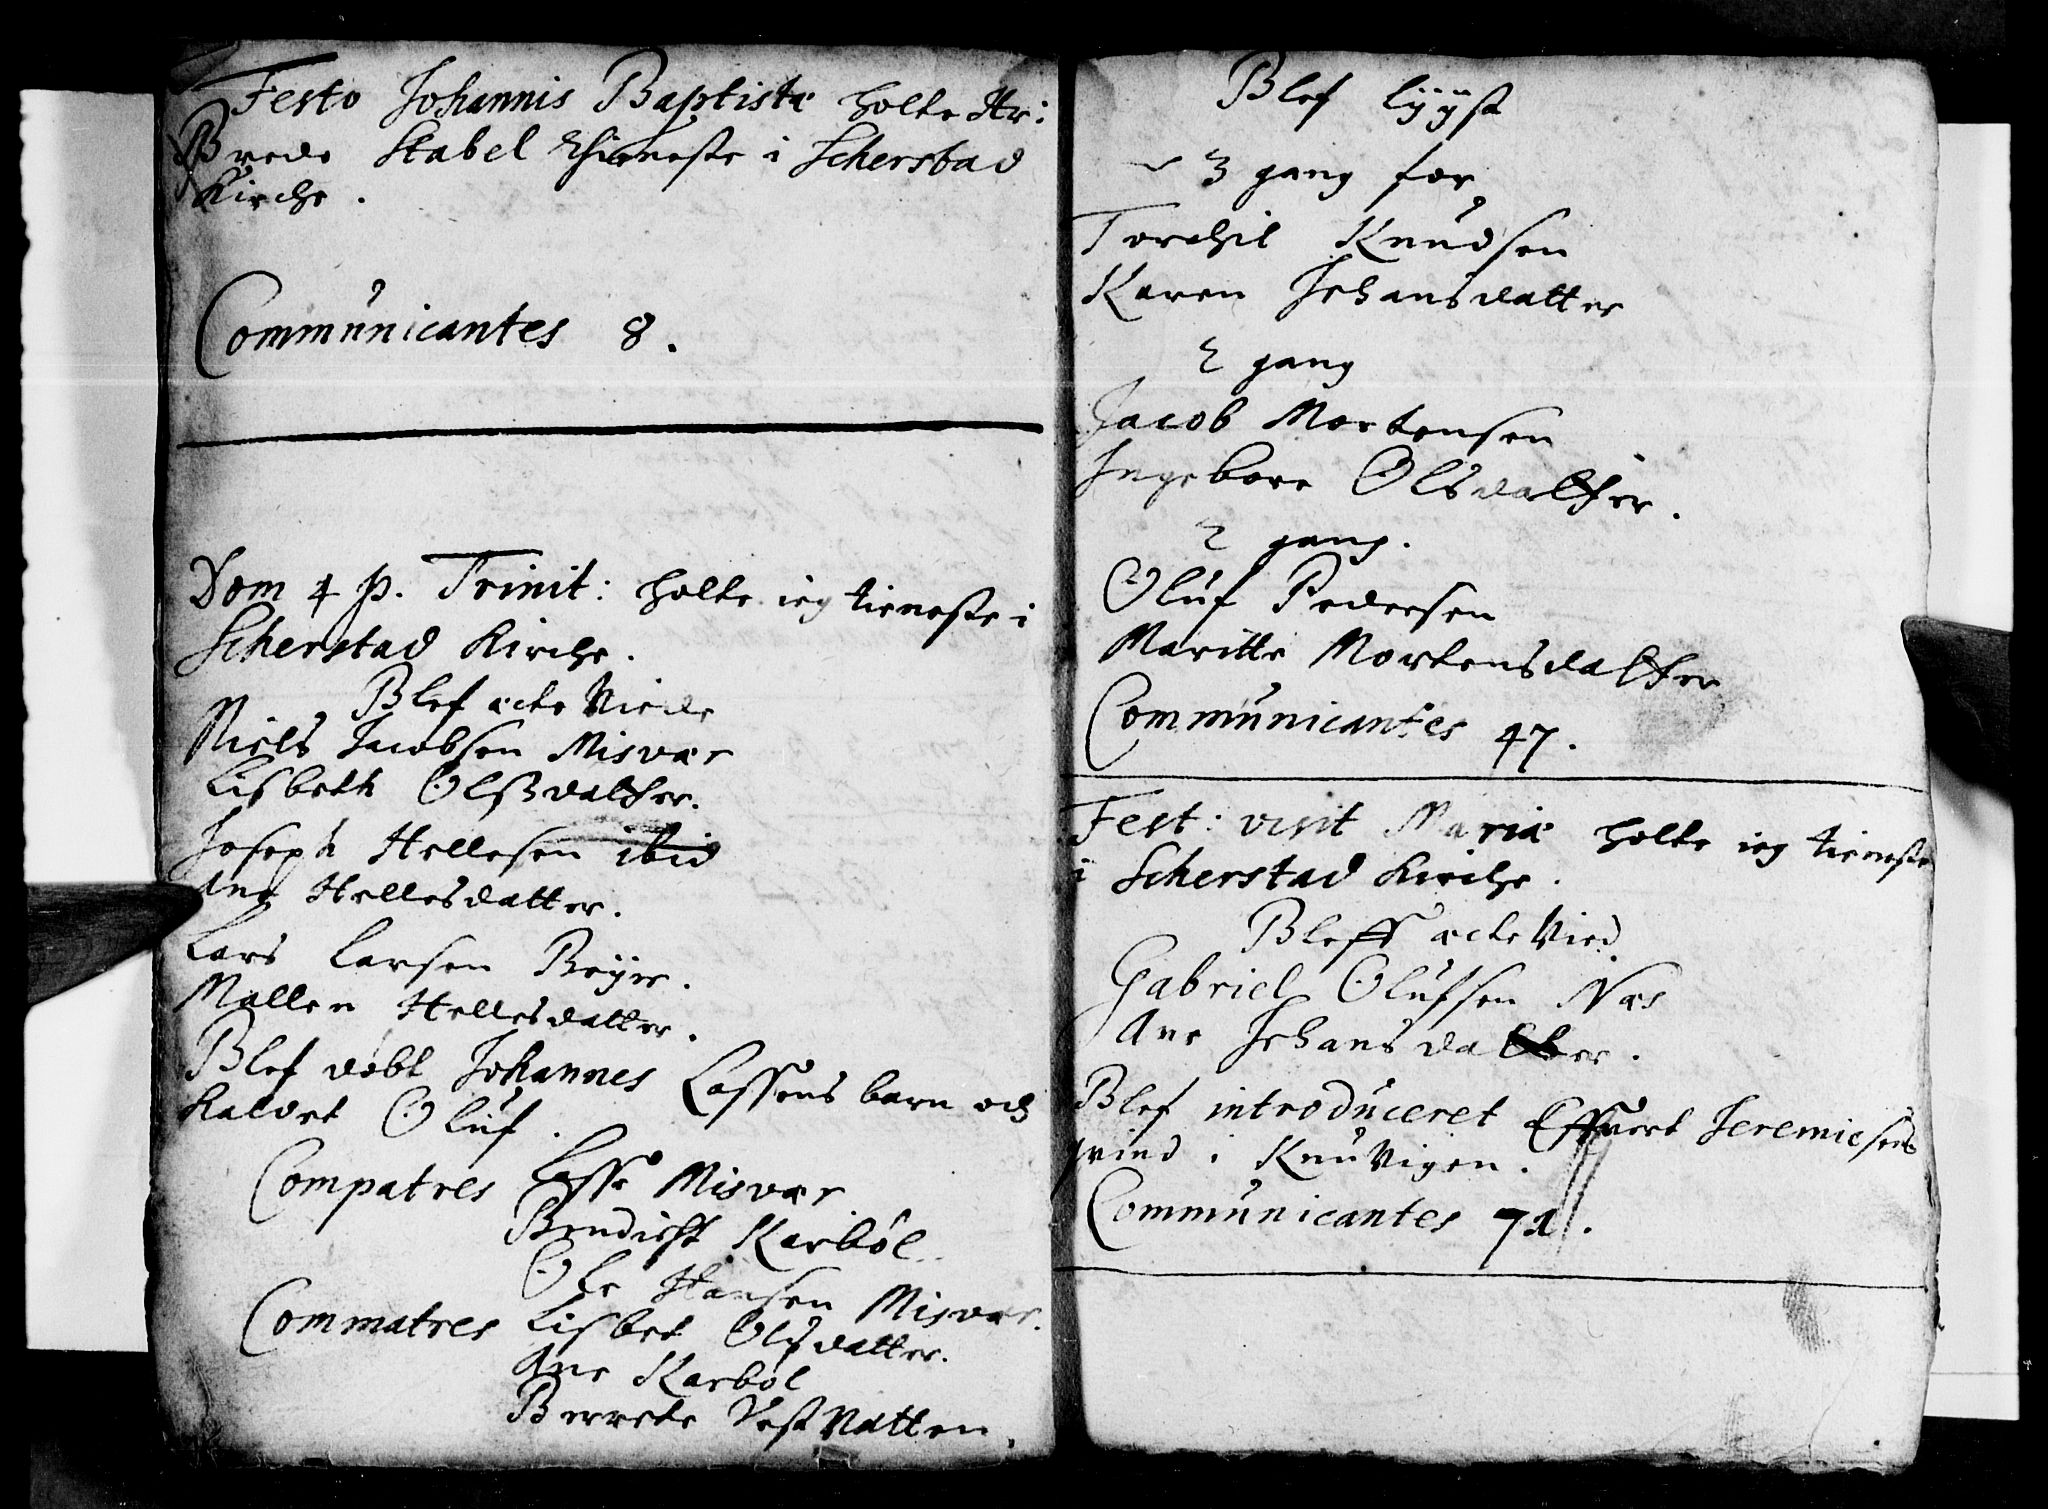 Festo Johannis Baptistæ holte Hr:
Brede Stabel Thieneste i Scherstad
Kirche.
Communicantes 8.
Dom 4 p. Trinit: holte ieg tieneste i
Scherstad Kirche.
Blef ecte Viede
Niels Jacobsen Misvær
Lisbeth Olsdatter.
Joseph Hellesen ibid
Ane Hellesdatter.
Lars Larsen Beyer.
Mallen Hellesdatter.
Blef døbt Johannes Lassens barn och
Kaldet Oluf.
Compatres Lasse Misvær
Bendicht Karbøl
Ole Hansen Misvær.
Commatres Lisbet Olsdatter.
Ane Karbøl
Berrete Vestvatten.
Blef lyyst
3 gang for
Torchil Knudsen
Karen Johansdatter
2 gang
Jacob Mortensen
Ingebore Olsdatter.
2 gang.
Oluf Pedersen
Maritte Mortensdatter
Communicantes 47.
Fest: visit Mariæ holte ieg tieneste
i Scherstad Kirche.
Bleff ecte Vied
Gabriel Olufsen Næs
Ane Johansdatter.
Blef introduceret Effvert Jeremiesens
qvind i Knuvigen.
Communicantes 71.